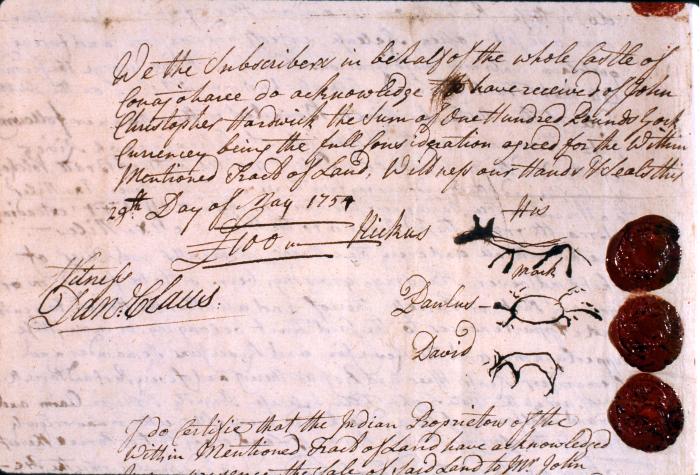 We the Subscribers in behalf of the whole Castle of
Conajoharee do acknowledge to have received of John
Christopher Hardwick the Sum of One Hundred Pounds York
Currencey being the full Consideration agreed for the Within
Mentioned Tract of Land, Witness our Hands & Seals this
29th Day of May 1754
£100 Hickus His
mark
Witness
Danl Claus
Paulus
David
I do Certify that the Indian Proprietors of the
Within Mentioned Tract of Land have acknowledged
presence the Sale of said Land to Mr John